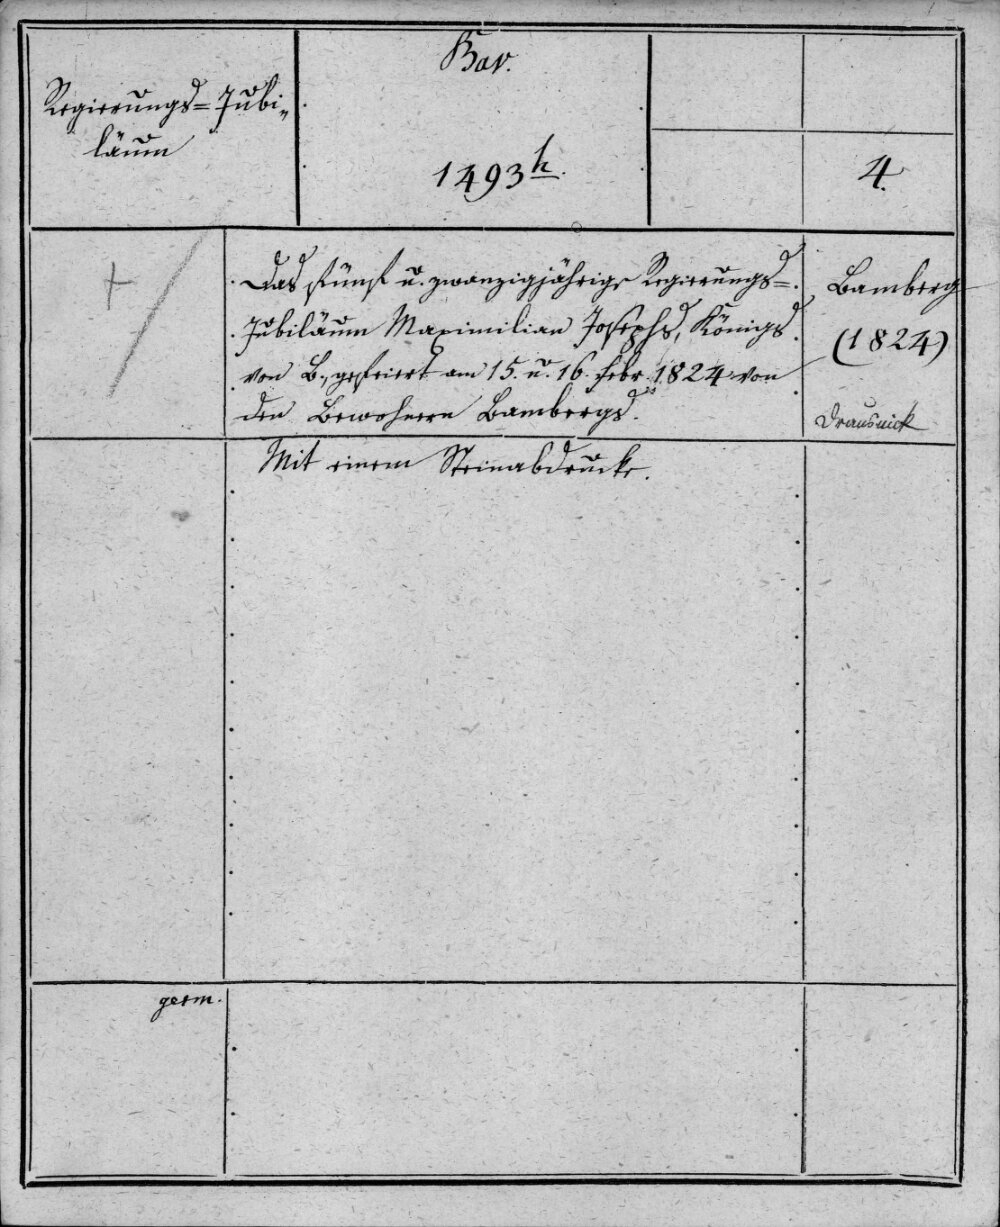 Regierungs=Jubi-
läum
Bav.
1493 h.
4.
Das fünf u. zwanzigjährige Regierungs=
Jubiläum Maximilian Josephs, Königs
von B., gefeiert am 15. u. 16. Febr. 1824 von
den Bewohnern Bambergs.
Bamberg
(1824)
Drausnick
Mit einem Steinabdrucke.
germ.